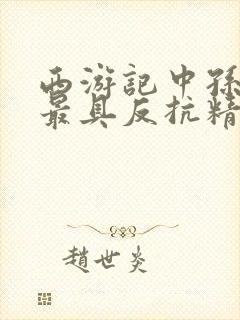 西游記中孫
最具反抗精
趙世炎